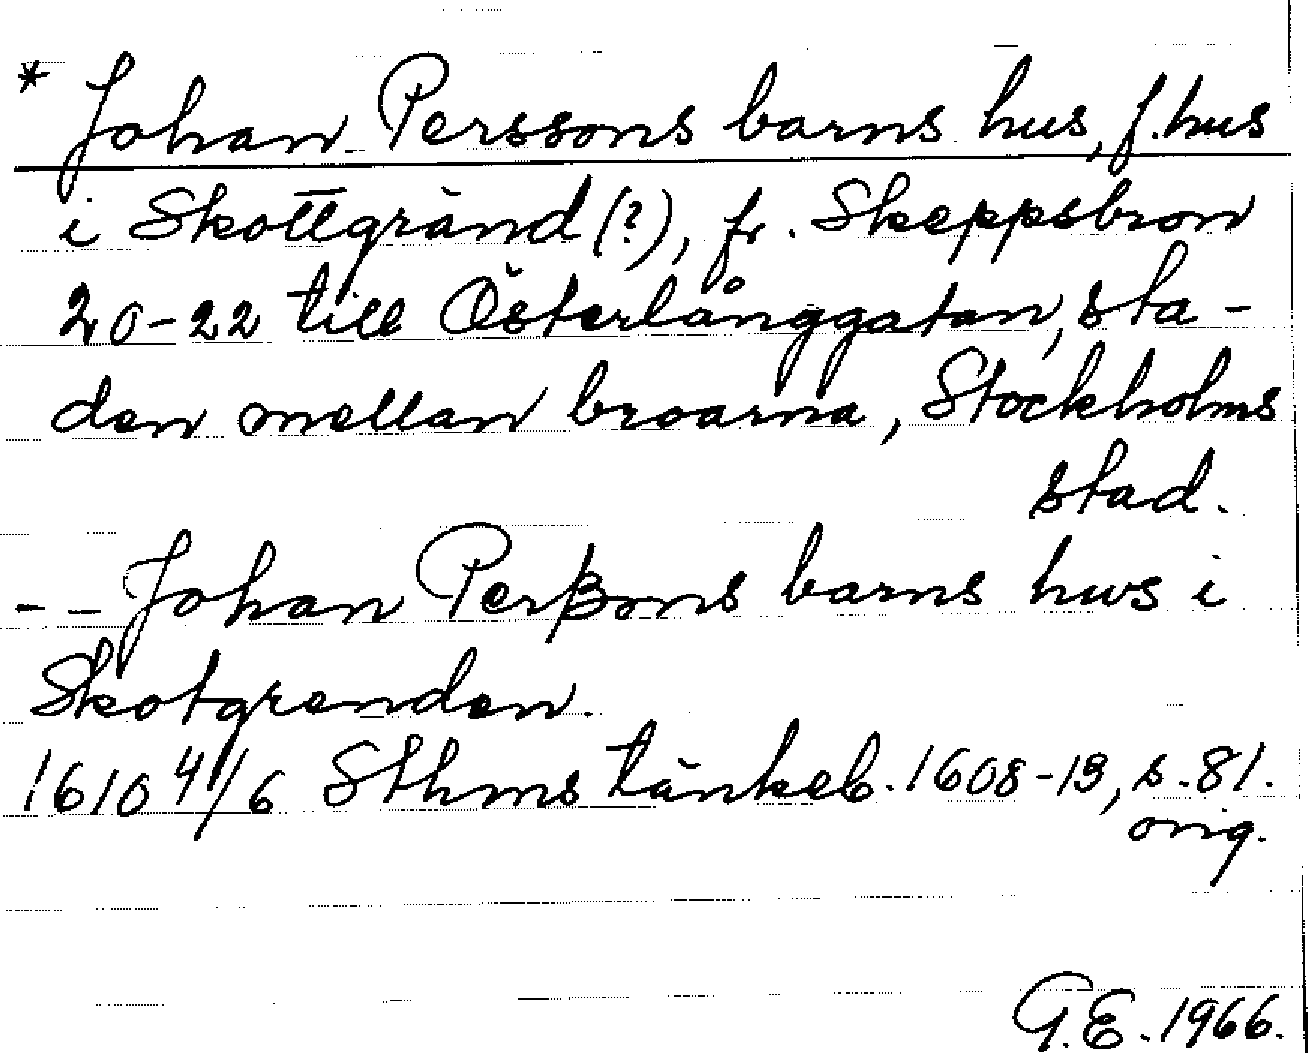 * Johan Perssons barns hus, f. hus
i Skottgränd (?), fr. Skeppsbron
20-22 till Österlånggatan, sta-
den mellan broarna, Stockholms
stad.
-- Johan Perßons barns hws i
Skotgrenden.
1610 4/6 Sthms tänkeb. 1608-13, s. 81.
orig.
G.E. 1966.